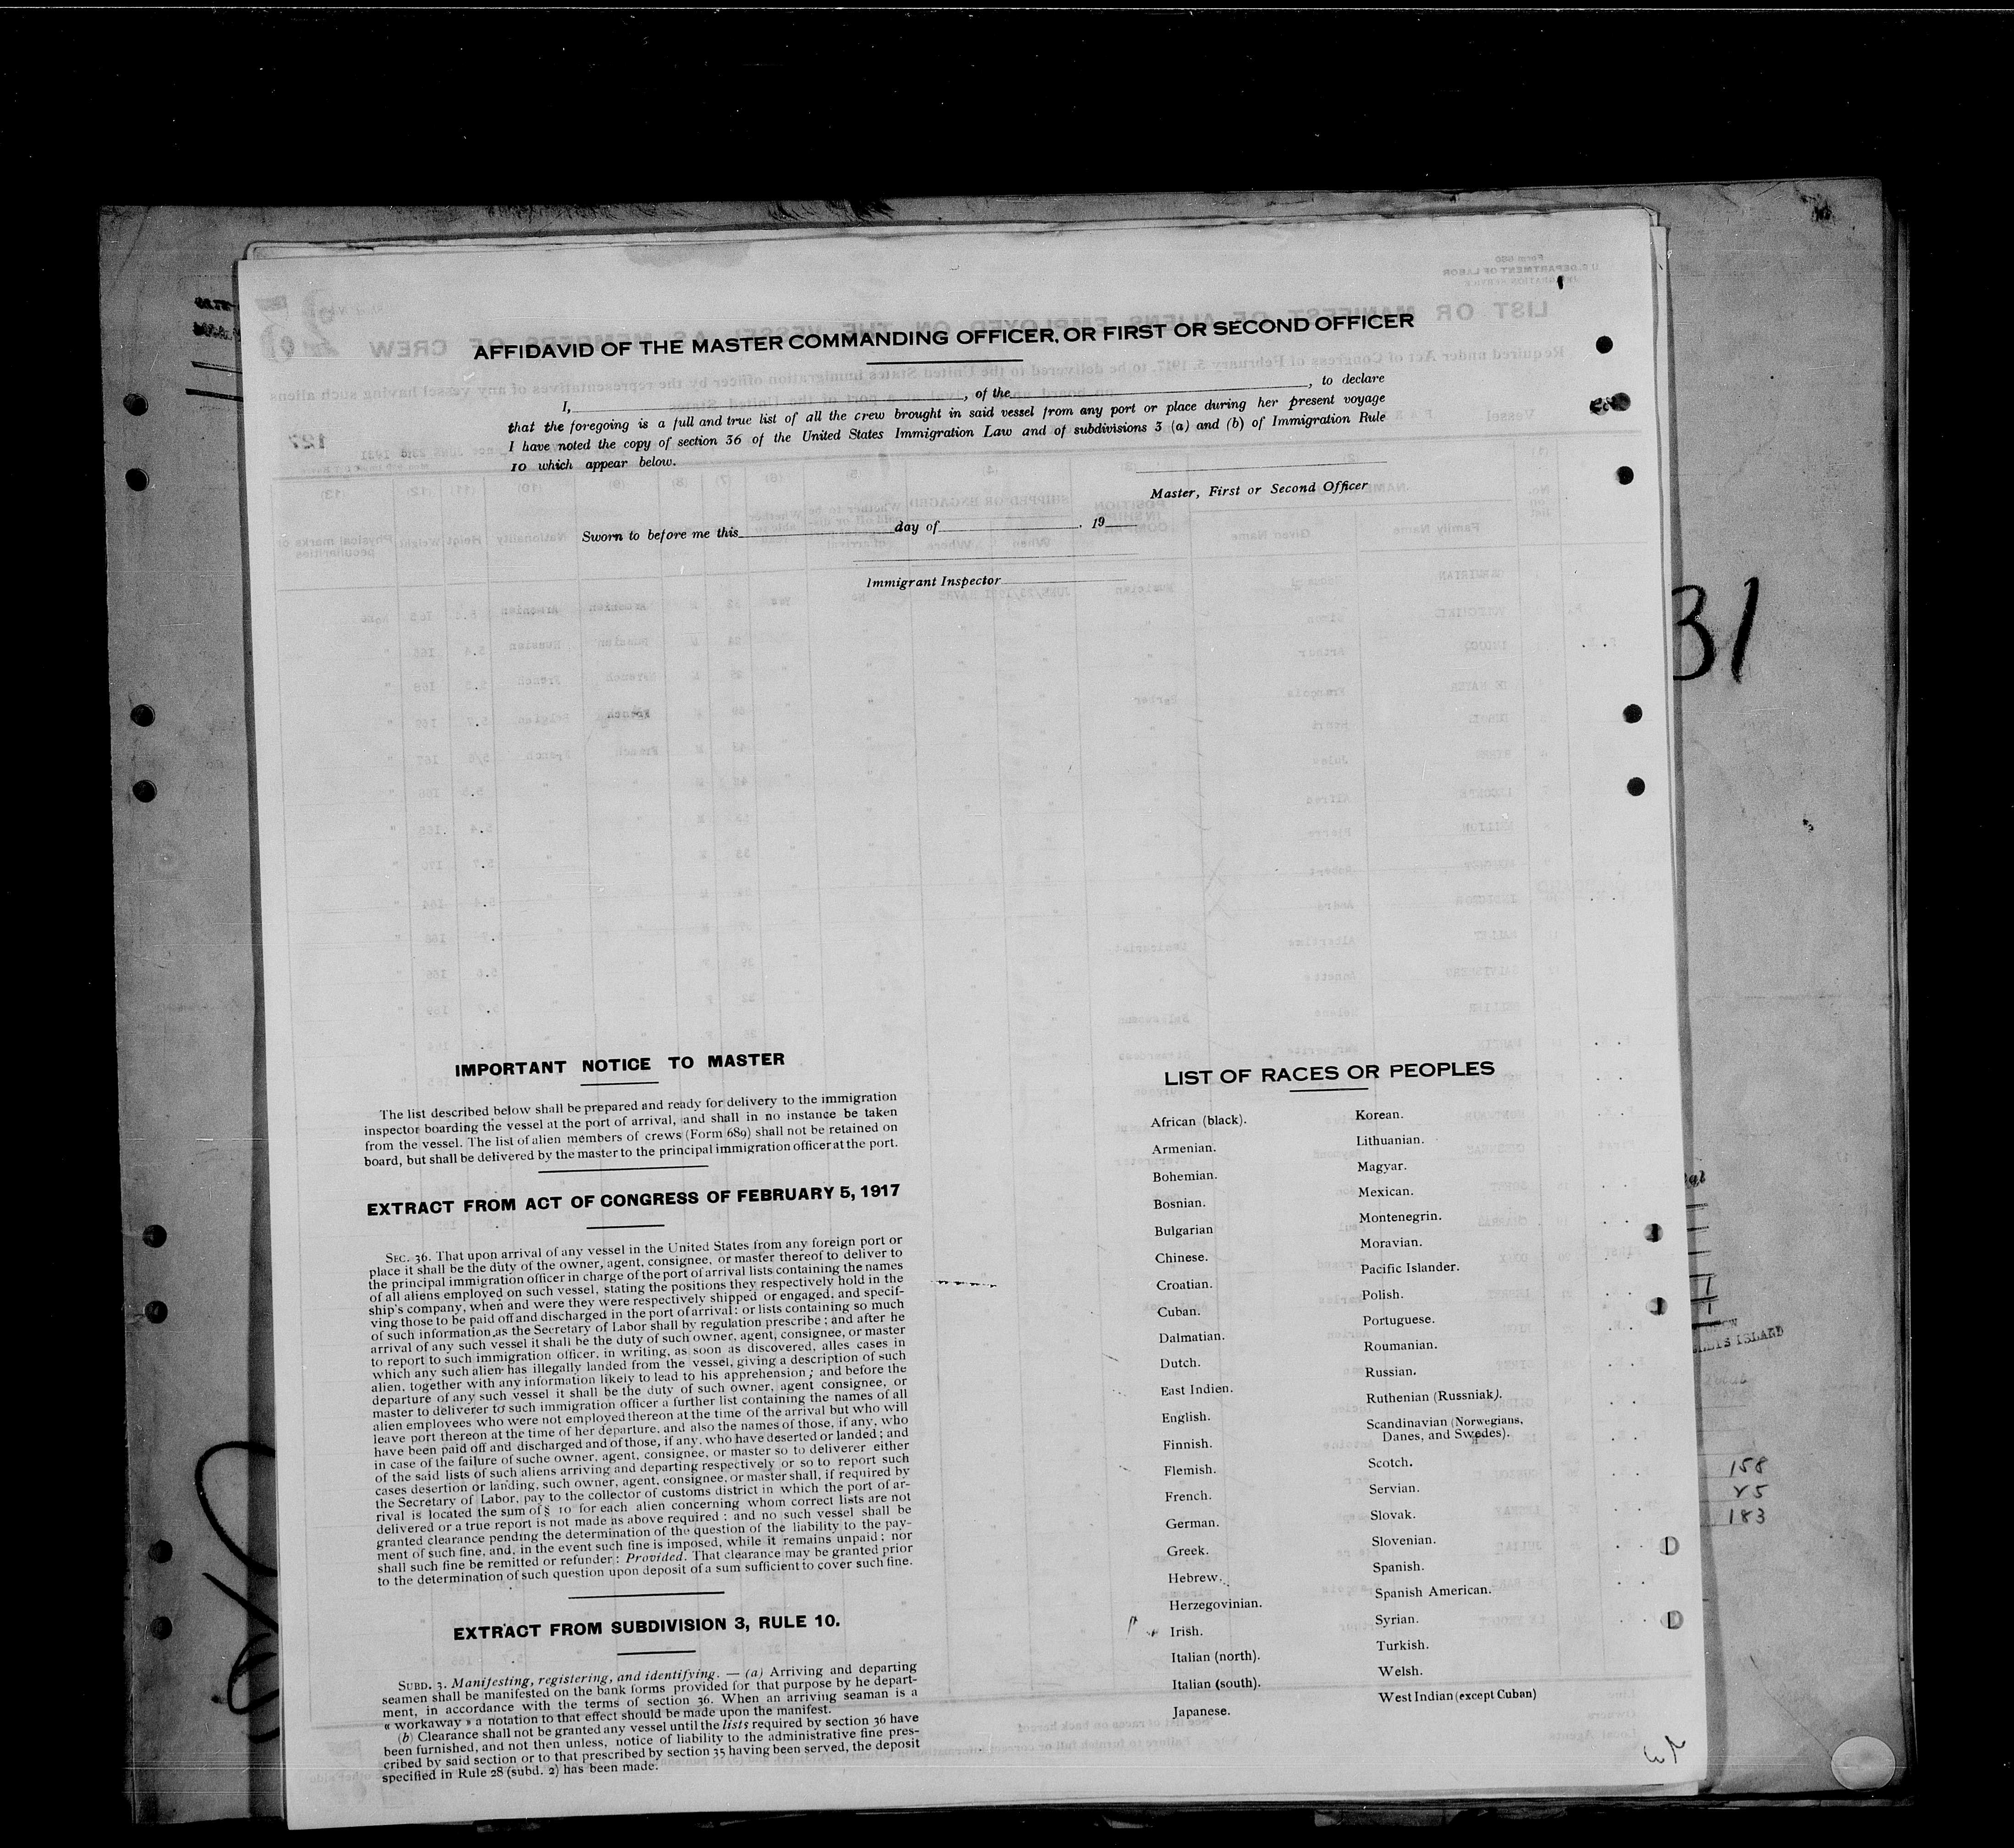 AFFIDAVID OF THE MASTER COMMANDING OFFICER, OR FIRST OR SECOND OFFICER
I, , of the , to declare
that the foregoing is a full and true list of all the crew brought in said vessel from any port or place during her present voyage
I have noted the copy of section 36 of the United States Immigration Law and of subdivisions 3 (a) and (b) of Immigration Rule
10 which appear below.
Master, First or Second Officer
Sworn to before me this day of , 19
Immigrant Inspector
31
IMPORTANT NOTICE TO MASTER
The list described below shall be prepared and ready for delivery to the immigration
inspector boarding the vessel at the port of arrival, and shall in no instance be taken
from the vessel. The list of alien members of crews (Form 689) shall not be retained on
board, but shall be delivered by the master to the principal immigration officer at the port.
EXTRACT FROM ACT OF CONGRESS OF FEBRUARY 5, 1917
SEC. 36. That upon arrival of any vessel in the United States from any foreign port or
place it shall be the duty of the owner, agent, consignee, or master thereof to deliver to
the principal immigration officer in charge of the port of arrival lists containing the names
of all aliens employed on such vessel, stating the positions they respectively hold in the
ship's company, when and were they were respectively shipped or engaged, and specif-
ving those to be paid off and discharged in the port of arrival: or lists containing so much
of such information as the Secretary of Labor shall by regulation prescribe; and after he
arrival of any such vessel it shall be the duty of such owner, agent, consignee, or master
to report to such immigration officer, in writing, as soon as discovered, alles cases in
which any such alien has illegally landed from the vessel, giving a description of such
alien, together with any information likely to lead to his apprehension; and before the
departure of any such vessel it shall be the duty of such owner, agent consignee, or
master to deliverer to such immigration officer a further list containing the names of all
alien employees who were not employed thereon at the time of the arrival but who will
leave port thereon at the time of her departure, and also the names of those, if any, who
have been paid off and discharged and of those, if any, who have deserted or landed; and
in case of the failure of suche owner, agent, consignee, or master so to deliverer either
of the said lists of such aliens arriving and departing respectively or so to report such
cases desertion or landing, such owner, agent, consignee, or master shall, if required by
the Secretary of Labor, pay to the collector of customs district in which the port of ar-
rival is located the sum of § 10 for each alien concerning whom correct lists are not
delivered or a true report is not made as above required; and no such vessel shall be
granted clearance pending the determination of the question of the liability to the pay-
ment of such fine, and, in the event such fine is imposed, while it remains unpaid; nor
shall such fine be remitted or refunder: Provided. That clearance may be granted prior
to the determination of such question upon deposit of a sum sufficient to cover such fine.
EXTRACT FROM SUBDIVISION 3, RULE 10.
SUBD. 3. Manifesting, registering, and identifying. — (a) Arriving and departing
seamen shall be manifested on the bank forms provided for that purpose by he depart-
ment, in accordance with the terms of section 36. When an arriving seaman is a
« workaway » a notation to that effect should be made upon the manifest.
(b) Clearance shall not be granted any vessel until the lists required by section 36 have
been furnished, and not then unless, notice of liability to the administrative fine pres-
cribed by said section or to that prescribed by section 35 having been served, the deposit
specified in Rule 28 (subd. 2) has been made.
LIST OF RACES OR PEOPLES
African (black).
Armenian.
Bohemian.
Bosnian.
Bulgarian
Chinese.
Croatian.
Cuban.
Dalmatian.
Dutch.
East Indien.
English.
Finnish.
Flemish.
French.
German.
Greek.
Hebrew.
Herzegovinian.
Irish.
Italian (north).
Italian (south).
Japanese.
Korean.
Lithuanian.
Magyar.
Mexican.
Montenegrin.
Moravian.
Pacific Islander.
Polish.
Portuguese.
Roumanian.
Russian.
Ruthenian (Russniak).
Scandinavian (Norwegians,
Danes, and Swedes).
Scotch.
Servian.
Slovak.
Slovenian.
Spanish.
Spanish American.
Syrian.
Turkish.
Welsh.
West Indian (except Cuban)
ISLAND
158
25
183